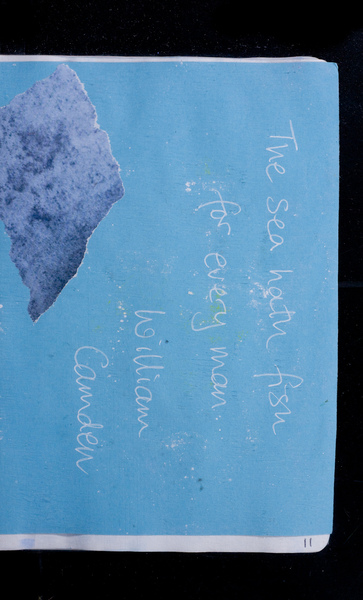 The sea hath fish
for every man.
William
Camden
11